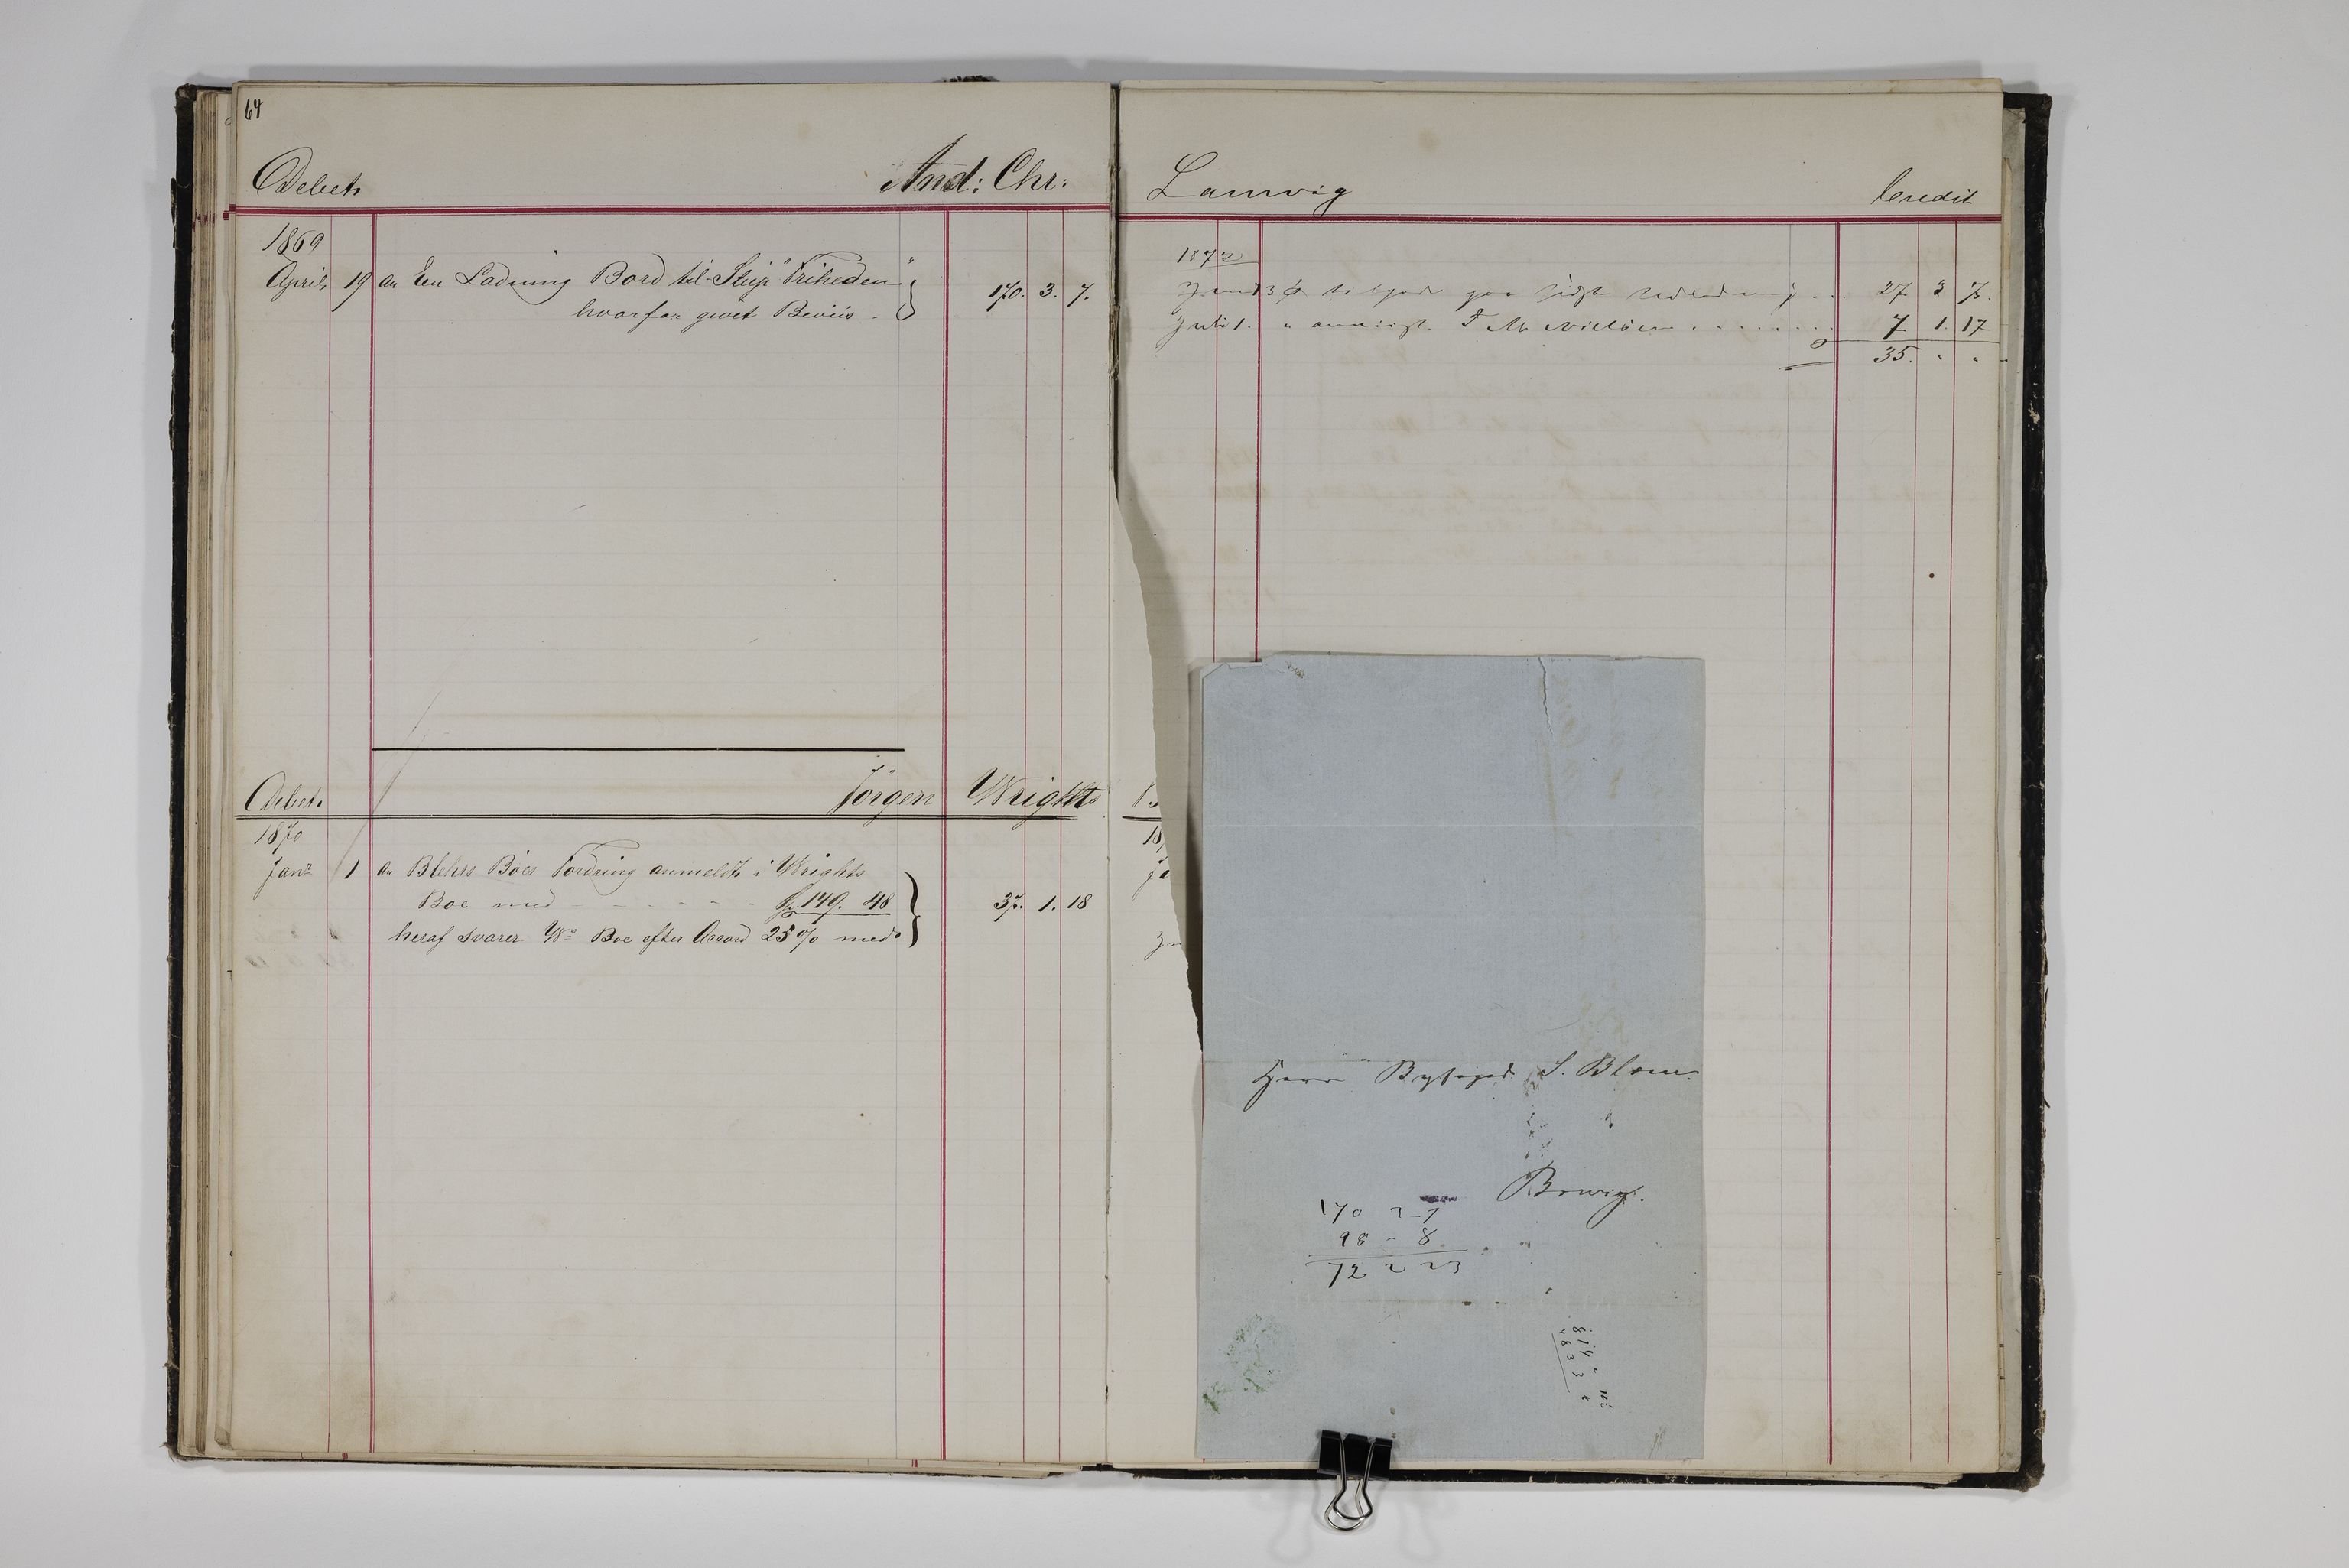 64
Debet And: Chr:
1869
April 19 an En Ladning Bord til Skip "Friheden"
hvorfor givet Beviis - 170. 3. 7.
Debet Jörgen Wrights
1870
Janr 1 an Blehrs Boes Fordring anmeldt i Wrights
Boe med - - - - - - 149. 48
heraf svarer Ws Boe efter Accord 25% med 37. 1. 18
Lamvig Credit
1872
27 3 7.
Juli 1. " F. M. Nielsen 7 1. 17
35. " "
18
Ja
Herr Byfoged S. Blom.
Brevig.
170 3-7
98 - 8
72 2 23